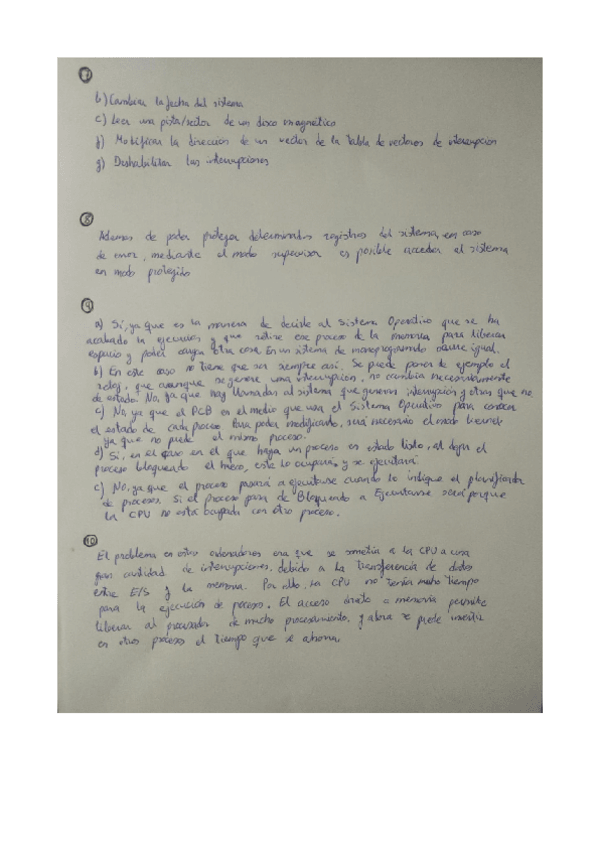 7
b) Cambiar la fecha del sistema
c) Leer una pista/sector de un disco magnético
f) Modificar la dirección de un vector de la tabla de vectores de interrupción
g) Deshabilitar las interrupciones
8
Ademas de poder proteger determinados registros del sistema, en caso
de error, mediante el modo supervisor es posible acceder al sistema
en modo protegido
9
a) Sí, ya que es la manera de decirle al Sistema Operativo que se ha
acabado la ejecución y que retire ese proceso de la memoria para liberar
espacio y poder otra cosa. En un sistema de monoprogramado ocurre igual.
b) En este caso no tiene que ser siempre así. Se puede poner de ejemplo el
reloj, que aunque se genere una interrupcion, no cambia necesariamente
de estado. No, ya que hay llamadas al sistema que generan interrupción y otras que no.
c) No ya que el PCB es el medio que usa el Sistema Operativo para conocer
el estado de cada proceso. Para poder modificarlo, será necesario el modo kernel
ya que no puede el mismo proceso.
d) Sí, en el caso en el que haya un proceso en estado listo, al dejar el
proceso bloqueado el hueco, este lo ocupará y se ejecutará.
e) No, ya que el proceso pasará a ejecutarse cuando lo indique el planificador
de procesos. Si el proceso pasa de Bloqueado a Ejecutarse será porque
la CPU no está ocupada con otro proceso.
10
El problema en otros ordenadores era que se sometía a la CPU a una
gran cantidad de interrupciones, debido a la transferencia de datos
entre E/S y la memoria. Por ello, la CPU no tenía mucho tiempo
para la ejecución de procesos. El acceso directo a memoria permite
liberar al procesador de mucho procesamiento, y ahora se puede invertir
en otros procesos el tiempo que se ahorra.